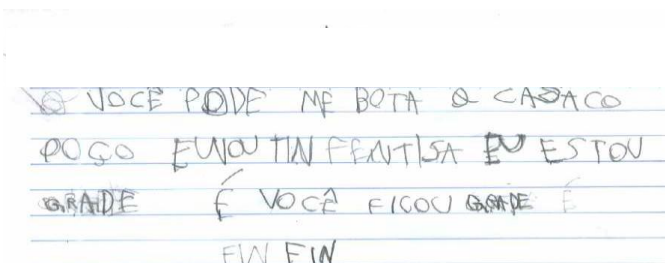 O VOCÊ PODE ME BOTA O CASACO
POÇO EUVOU TIN FENTISA EU ESTOU
GRADE É VOCÊ FICOU GRADE É
FIN FIN